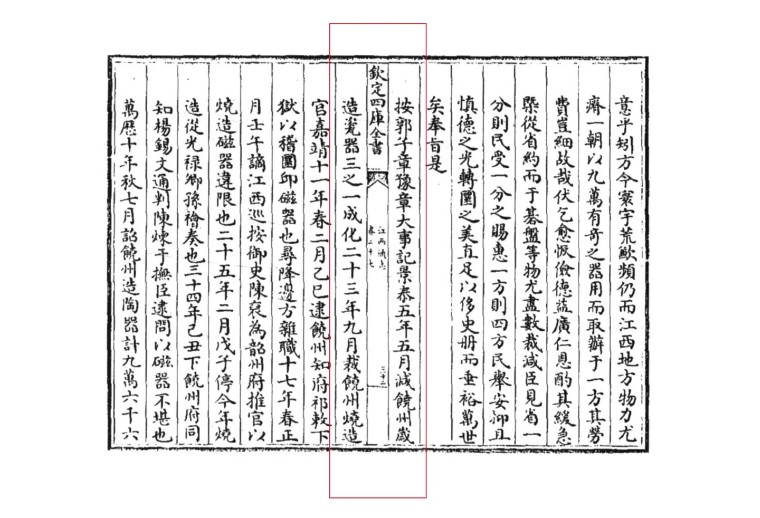 意乎矧方今寰宇荒歉頻仍而江西地方物力尤
瘠一朝以九萬有奇之器用而取辦于一方其勞
費豈細故哉伏乞愈恢儉德益廣仁恩酌其緩急
槩從省約而于棊盤等物尤盡數裁減臣見省一
分則民受一分之賜惠一方則四方民舉安仰且
慎德之光轉圜之美直足以侈史册而垂裕萬世
矣奉旨是
按郭子章豫章大事記景泰五年五月減饒州歲
欽定四庫全書
江西通志
卷二十七
三十二
造瓷器三之一成化二十三年九月裁饒州燒造
官嘉靖十一年春二月乙巳逮饒州知府祁敕下
獄以稽圜邱磁器也尋降邊方雜職十七年春正
月壬午謫江西巡按御史陳裦為韶州府推官以
燒造磁器違限也二十五年二月戊子停今年燒
造從光禄卿孫檜奏也三十四年己丑下饒州府同
知楊錫文通判陳煉于撫臣逮問以磁器不堪也
萬歴十年秋七月詔饒州造陶器計九萬六千六